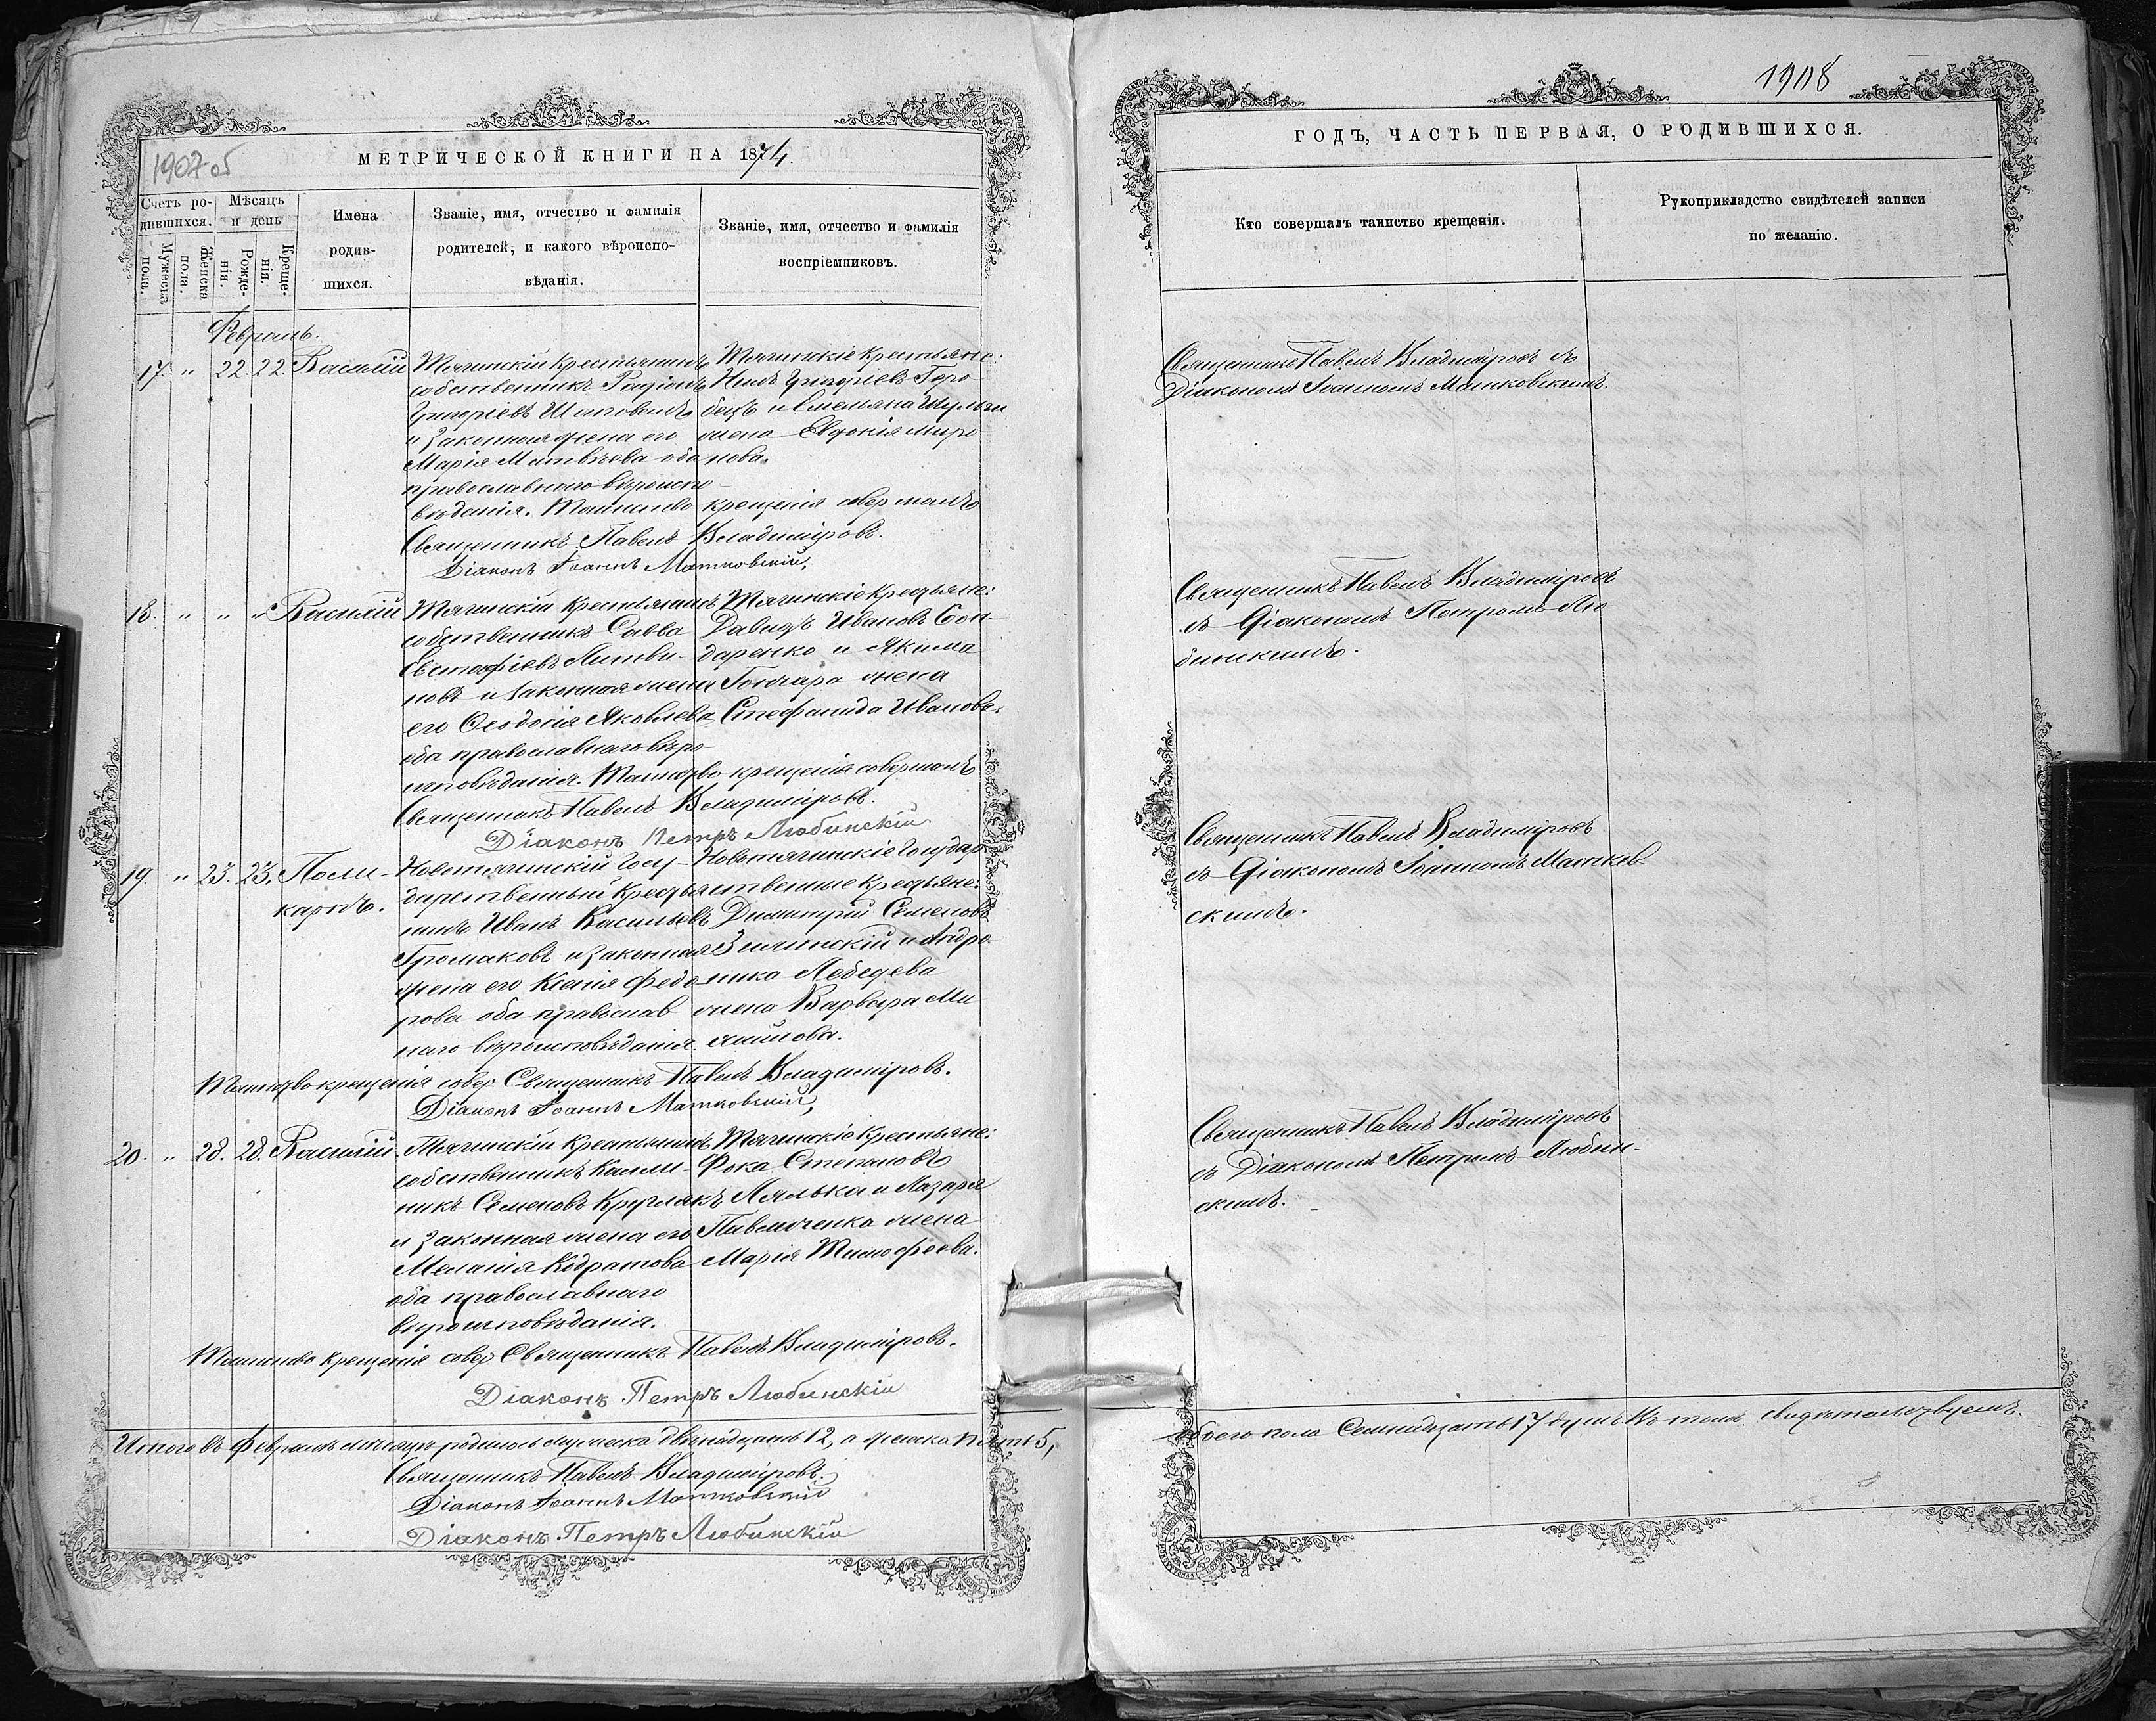 1907 об
МЕТРИЧЕСКОЙ КНИГИ НА 1874
Счетъ ро-
дившихся.
Мужеска
пола.
Женска
пола.
Мѣсяцъ
и день
Рожде-
нія.
Креще-
нія.
Имена
родив-
шихся.
Званіе, имя, отчество и фамилія
родителей, и какого вѣроиспо-
вѣданія.
Званіе, имя, отчество и фамилія
воспріемниковъ.
Февраль.
17. " 22. 22. Василій
Тягинскій крестьянинъ
собственникъ Радіонъ
Григорьевъ
и законная жена его
Марія Матвѣева оба
православнаго вѣроиспо-
вѣданія. Таинство крещенія совершалъ
Священникъ Павелъ Владиміровъ.
Діаконъ Іоаннъ Матковскій,
Тягинскіе крестьяне:
Григоріевъ Горо-
бецъ и Емельяна Шульги
жена Евдокія Миро
нова.
18. " " " Василій
Тягинскій крестьянинъ
собственникъ Савва
Евстафіевъ Литви-
новъ и законная жена
его Ѳеодосія Яковлева
оба православнаго вѣро-
исповѣданія. Таинство крещенія совершалъ
Священникъ Павелъ Владиміровъ.
Діаконъ Петръ Любинскій
Тягинскіе крестьяне:
Давидъ Ивановъ Бон-
даренко и Якима
Гончара жена
Стефанида Иванова.
19. " 23. 23. Поли-
карпъ.
Новотягинскій Госу-
дарственный крестья
нинъ Иванъ Васильевъ
Громаковъ и законная
жена его Ксенія Федо
рова оба православ
наго вѣроисповѣданія.
Новотягинскіе Государ
ственные крестьяне:
Димитрій Семеновъ
и Андро
ника Лебедева
жена Варвара Ми
хайлова.
Таинство крещенія совер Священникъ Павелъ Владиміровъ.
Діаконъ Іоаннъ Матковскій,
20. " 28. 28. Василій.
Тягинскій крестьянинъ
собственникъ Калли-
никъ Семеновъ Круглякъ
и законная жена его
Меланія Кодратова
оба православнаго
вѣроисповѣданія.
Тягинскіе крестьяне:
Фока Степановъ
Лялька и Лазаря
жена
Марія Тимофеева.
Таинство крещенія совер Священникъ Павелъ Владиміровъ.
Діаконъ Петръ Любинскій
Итого въ Февралѣ мѣсяцѣ родилось мужеска двѣнадцать 12, а женска пять 5,
Священникъ Павелъ Владиміровъ.
Діаконъ Іоаннъ Матковскій
Діаконъ Петръ Любинскій
1908
ГОДЪ, ЧАСТЬ ПЕРВАЯ, О РОДИВШИХСЯ.
Кто совершалъ таинство крещенія.
Рукоприкладство свидѣтелей записи
по желанію.
Священникъ Павелъ Владиміровъ съ
Діакономъ Іоанномъ Матковскимъ.
Священникъ Павелъ Владиміровъ
съ Діакономъ Петромъ Лю
бинскимъ.
Священникъ Павелъ Владиміровъ
съ Діакономъ Іоанномъ Матков
скимъ.
Священникъ Павелъ Владиміровъ
съ Діакономъ Петромъ Любин-
скимъ.
обоего пола Семнадцать 17 душъ въ томъ свидѣтельствуемъ.